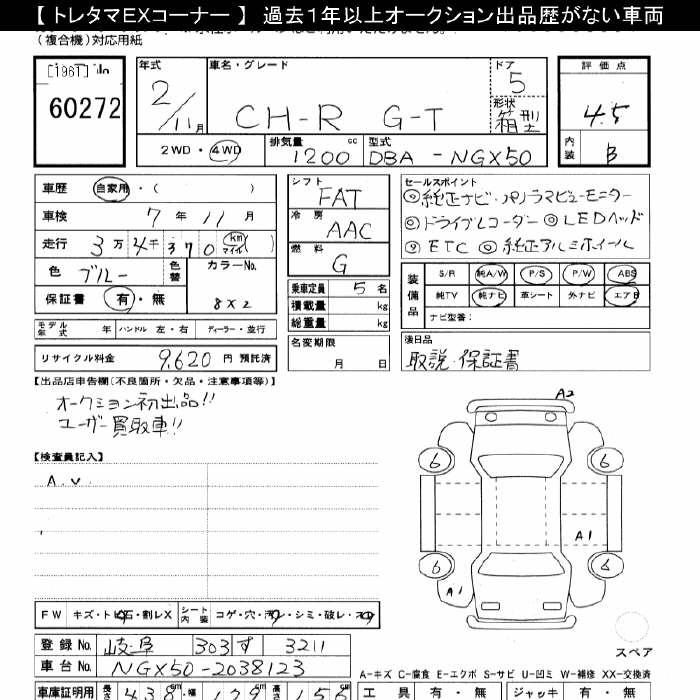 【 トレタマEXコーナー 】 過去1年以上オークション出品歴がない車両
(複合機)対応用紙
60272
年式
2/11月
車名・グレード
CH-R G-T
ドア
5
形状
箱型
評価点
4.5
内装
B
2WD・4WD
排気量
1200 cc
型式
DBA -NGX50
車歴
自家用・( )
車検
7年11月
走行
3万4千370 km マイル ( )
色
ブルー
色替
カラーNo.
8X2
保証書
有・無
モデル年式 年
ハンドル 左・右
ディーラー・並行
リサイクル料金
9,620 円 預託済
シフト
FAT
冷房
AAC
燃料
G
乗車定員 5名
積載量 kg
総重量 kg
名変期限
月 日
セールスポイント
◎純正ナビ・パノラマビューモニター
◎ドライブレコーダー ◎LEDヘッド
◎ETC ◎純正アルミホイール
装備品
S/R 純A/W P/S P/W ABS
純TV 純ナビ 革シート 外ナビ エアB
ナビ型番:
後日品
取説・保証書
【出品店申告欄(不良箇所・欠品・注意事項等)】
オークション初出品!!
ユーザー買取車!!
【検査員記入】
A.v
A2
6
6
A1
6
6
A1
スペア
FW
キズ・トビ石・割レX
シート内装
コゲ・穴・汚レ・シミ・破レ・スレ
登録 No.
岐阜 303 す 3211
車台 No.
NGX50-2038123
A-キズ C-腐食 E-エクボ S-サビ U-凹ミ W-補修 XX-交換済
車庫証明用
長さ 438 cm・幅
工具 有・無 ジャッキ 有・無